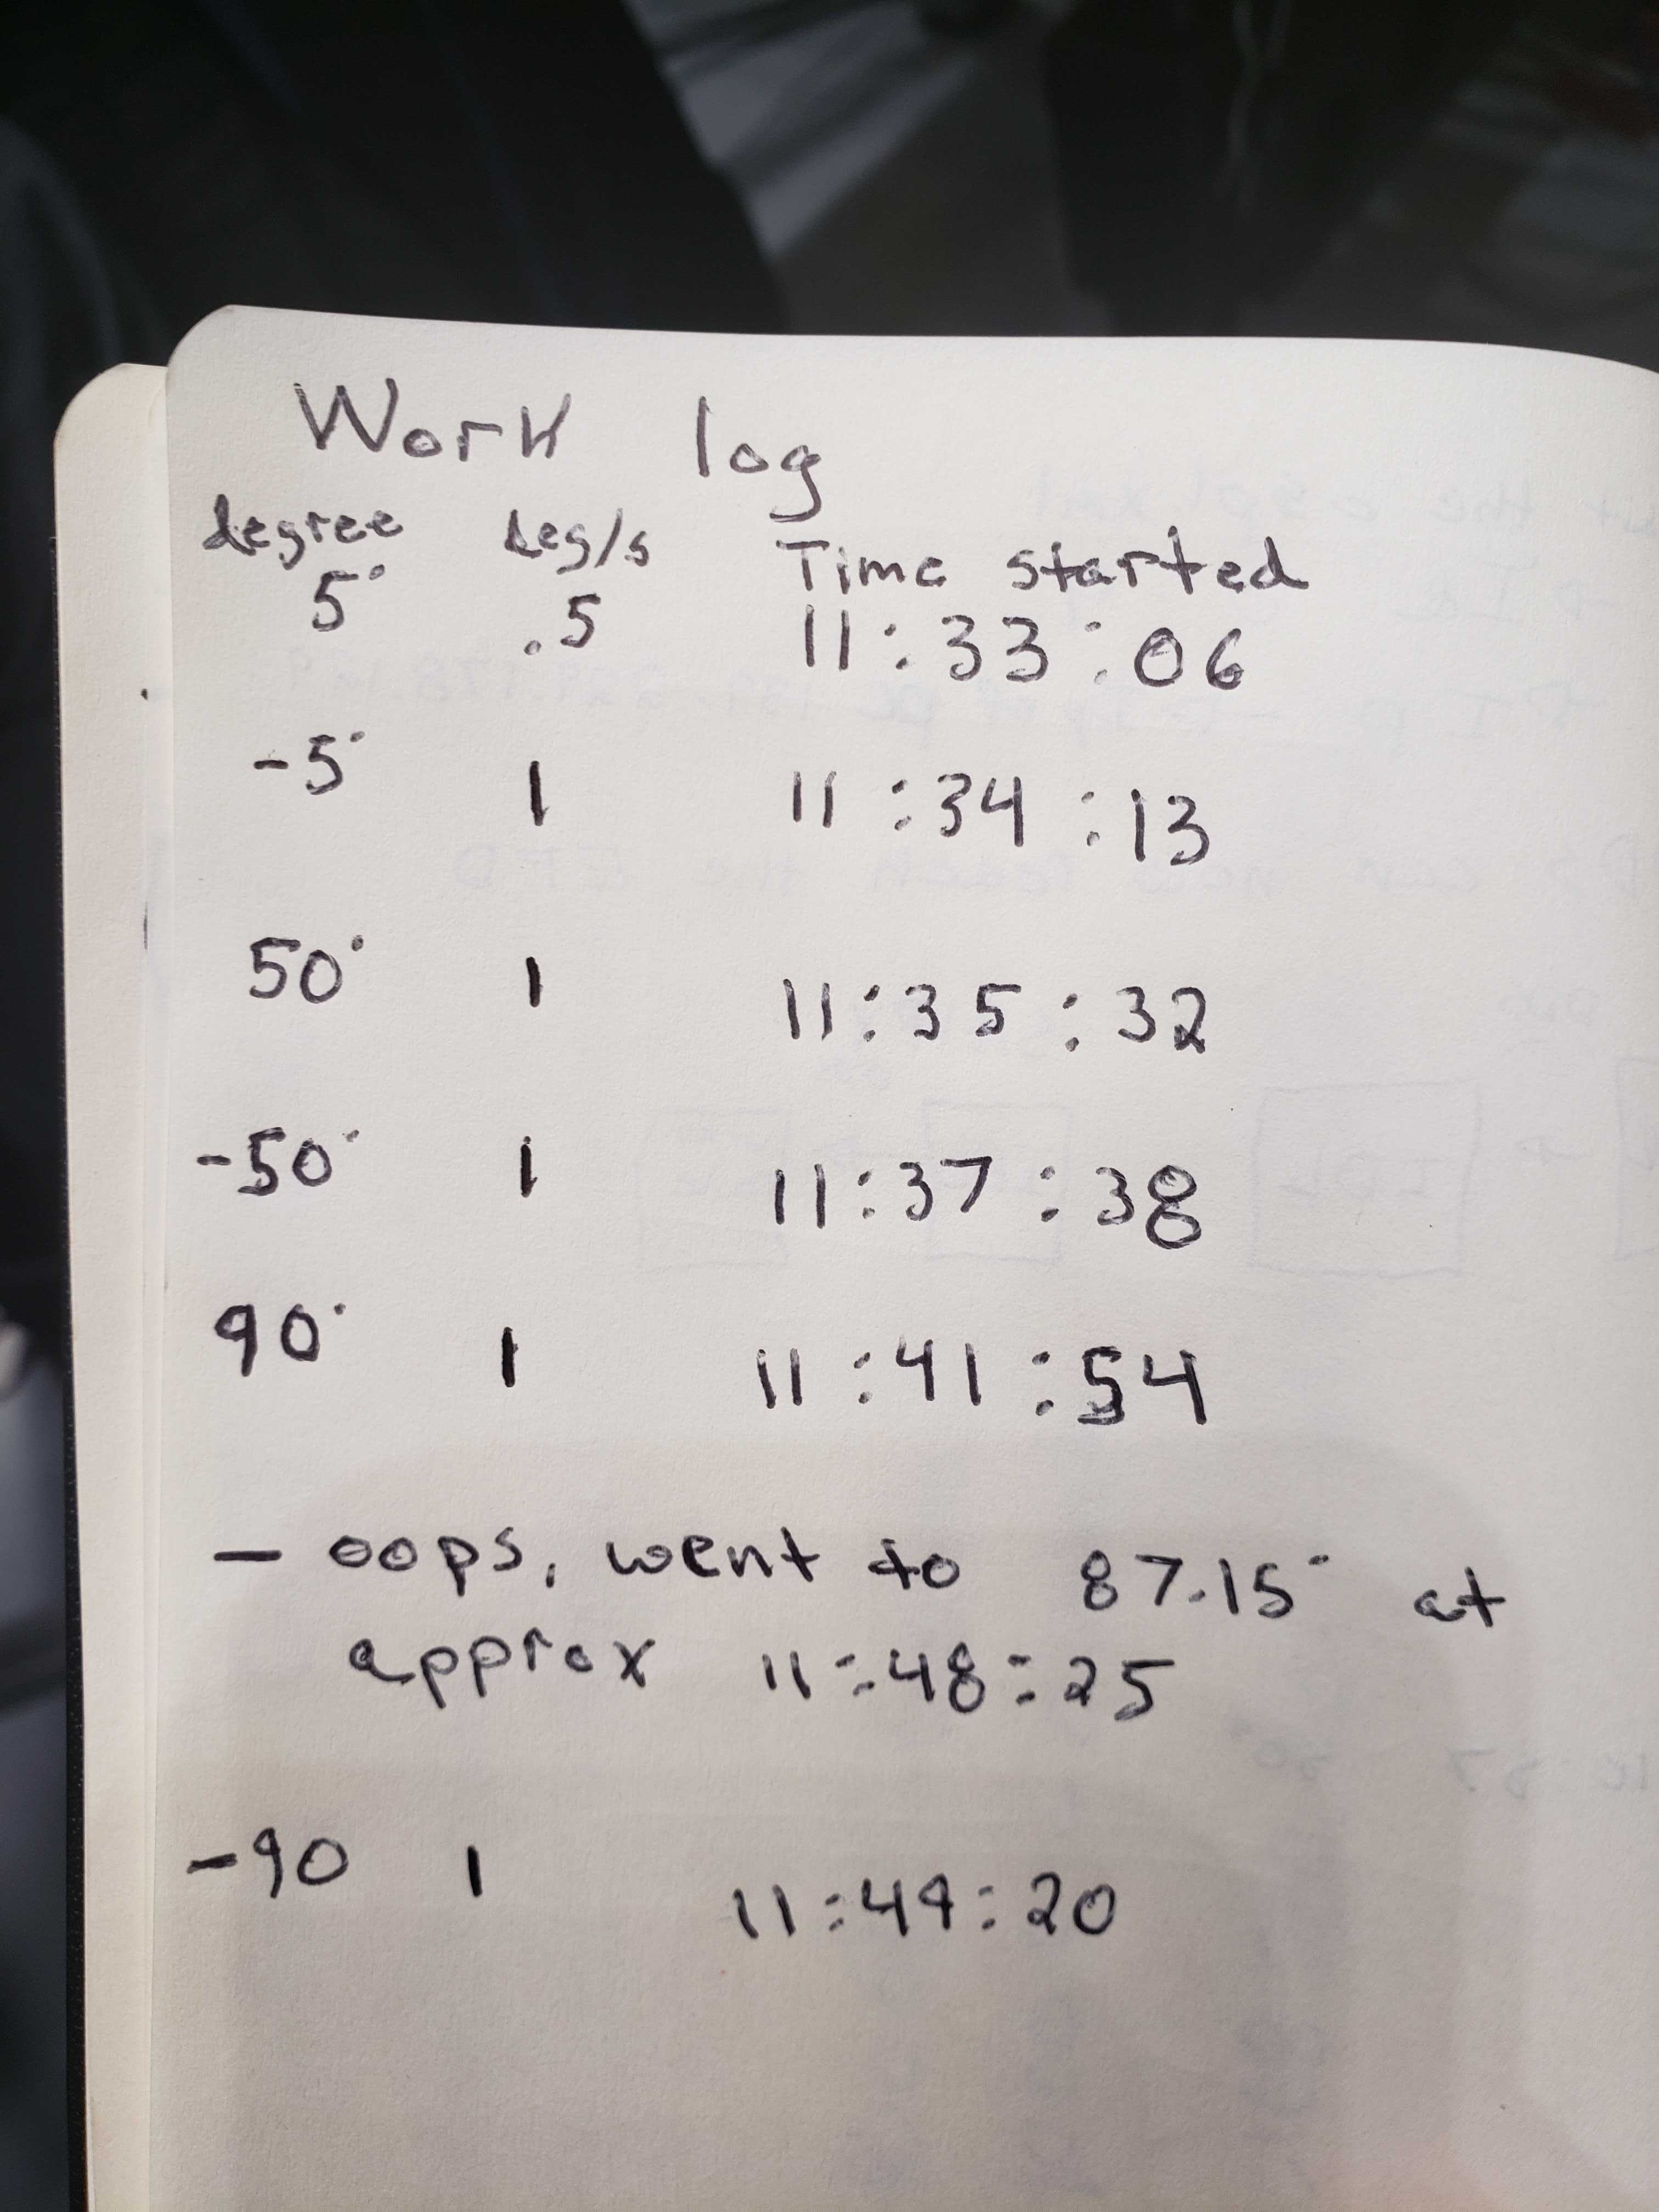 Work log
degree deg/s Time started
5° .5 11:33:06
-5° 1 11:34:13
50° 1 11:35:32
-50° 1 11:37:38
90° 1 11:41:54
- oops, went to 87.15° at
approx 11:48:25
-90 1 11:49:20